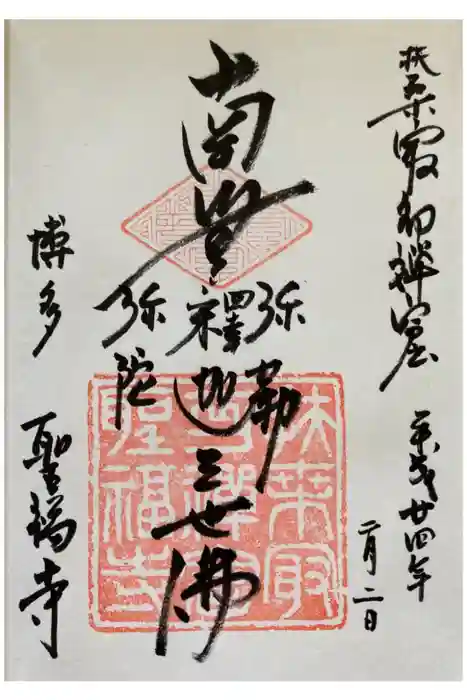 扶桑最初禅窟
平成廿四年
二月二日
南無釋迦三世佛
弥勒
弥陀
博多
聖福寺
扶桑最初禅窟聖福寺